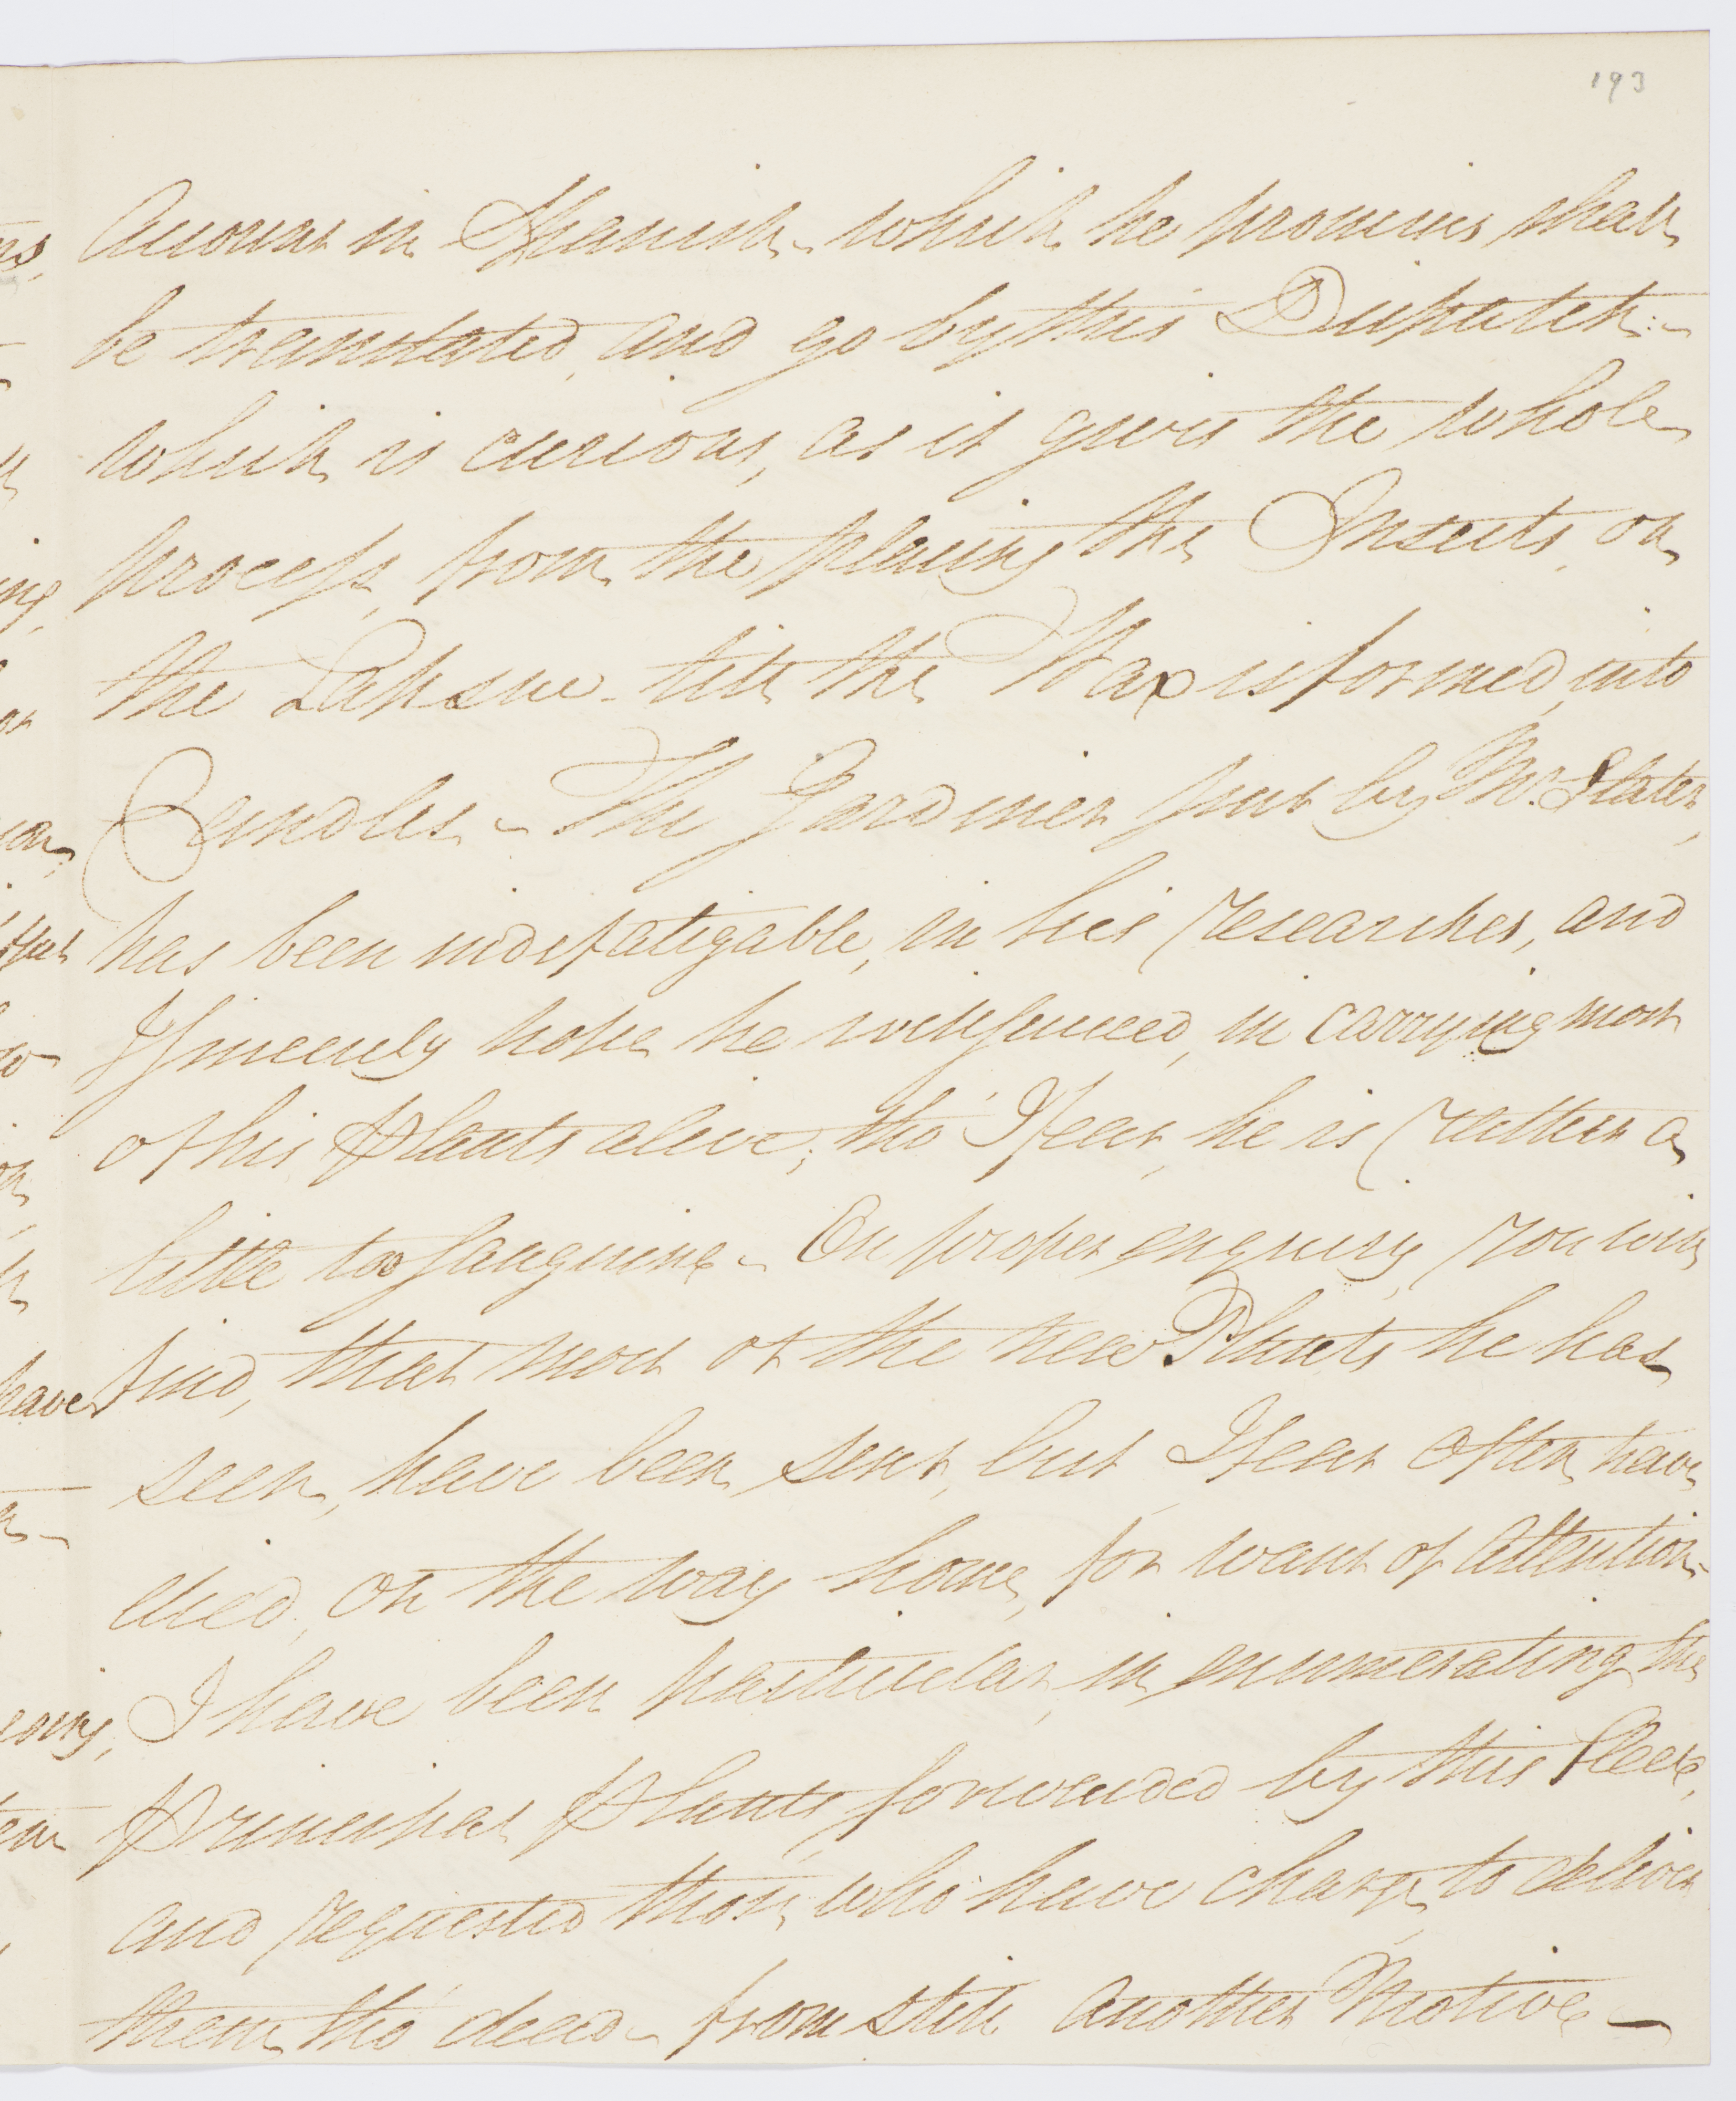 193
Account in Spanish - which he promises shall
be translated, and go by this Dispatch: -
which is curious, as it gives the whole
process, from the placing the Insects, on
the Lahsue - till the Wax is formed, into
Candles - The Gardiner sent by Mr. Slater,
has been indefatigable, in his researches, and
I sincerely hope he will succeed, in carrying most
of his Plants alive; tho' I fear, he is rather a
little too sanguine - On proper enquiry, you will
find, that most of the new Plants he has
seen, have been sent, but I fear often have
died, on the way home, for want of attention -
I have been particular, in enumerating the
Principal Plants, forwarded by this Fleet,
and requested those, who have charge, to deliver
them, tho' dead - from still another Motive -